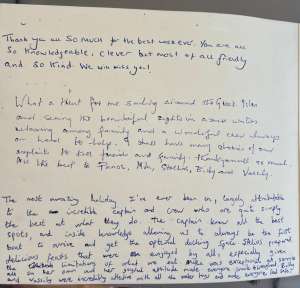 Thank you all SO MUCH for the best week ever. You are all
so knowledgeable, clever but most of all friendly
and so kind. We will miss you!
What a treat for me sailing around the Greek Isles
and seeing the beautiful sights in such waters
relaxing among family and a wonderful crew always
on hand to help. I shall have many stories of our
exploits to tell friends and family. Thank you all so much.
All the best to Panos, Mike, Stelios, Billy and Vassily.
The most amazing holiday I've ever been on, largely attributable
to the incredible captain and crew who are quite simply
the best at what they do. The captain knew all the best
spots, and inside knowledge allowing us to always be the first
boat to arrive and get the optimal docking space. Stelios prepared
delicious feasts that were enjoyed by all, especially given
the limitations of what we eat. Mike was exceptional at service
all on her own and her joyful attitude made everyone
and Vassily were incredibly attentive with all the water toys and